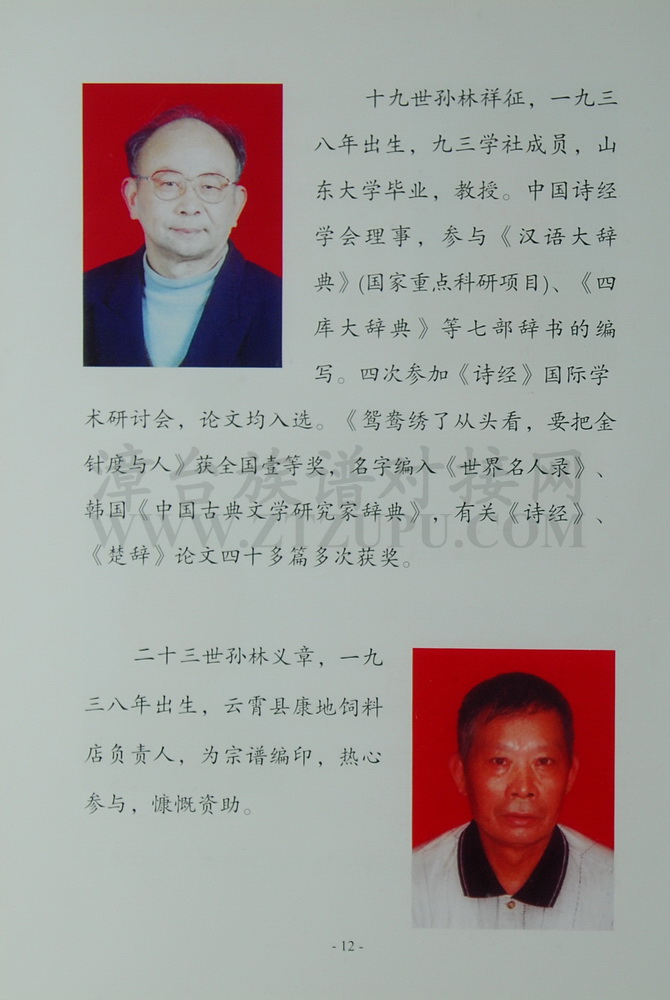 十九世孙林祥征，一九三
八年出生，九三学社成员，山
东大学毕业，教授。中国诗经
学会理事，参与《汉语大辞
典》(国家重点科研项目)、《四
库大辞典》等七部辞书的编
写。四次参加《诗经》国际学
术研讨会，论文均入选。《鸳鸯绣了从头看，要把金
针度与人》获全国壹等奖，名字编入《世界名人录》、
韩国《中国古典文学研究家辞典》，有关《诗经》、
《楚辞》论文四十多篇多次获奖。
漳台族谱对接网
WWW.ZTZUPU.COM
二十三世孙林义章，一九
三八年出生，云霄县康地饲料
店负责人，为宗谱编印，热心
参与，慷慨资助。
- 12 -